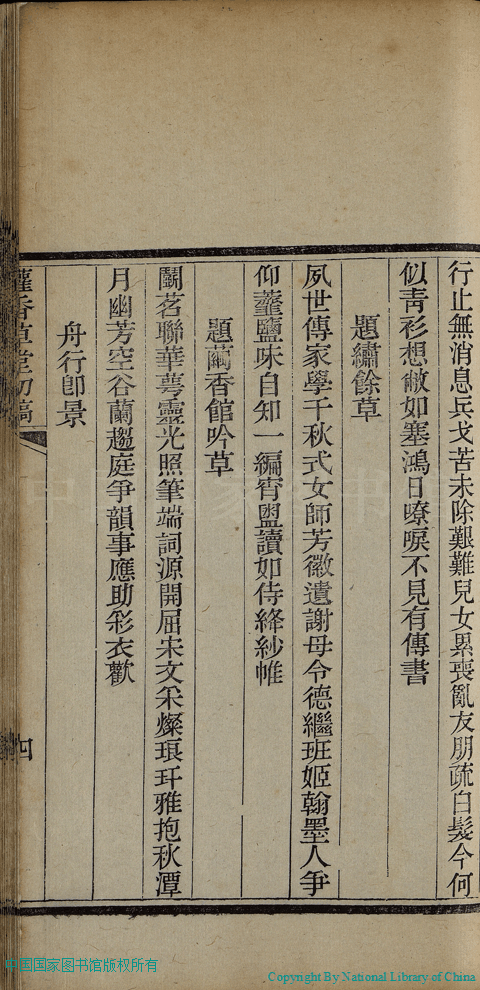 行止無消息兵戈苦未除艱難兒女累喪亂友朋疏白髮今何
似靑衫想敝如塞鴻日嘹唳不見有傳書
題繡餘草
夙世傳家學千秋式女師芳徽遺謝母令德繼班姬翰墨人爭
仰虀鹽味自知一編宵盥讀如侍絳紗帷
題蘭香館吟草
鬭茗聯華萼靈光照筆端詞源開屈宋文采燦琅玕雅抱秋潭
月幽芳空谷蘭趨庭爭韻事應助彩衣歡
舟行卽景
香草堂初稿
四
中国国家图书馆版权所有
Copyright By National Library of China